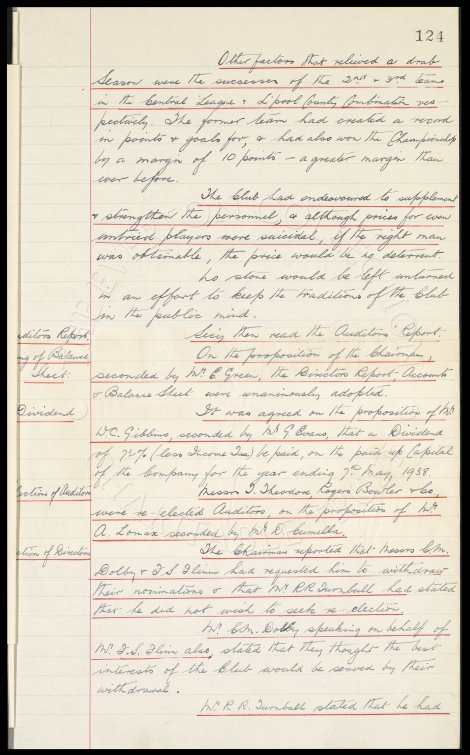 124
Other factors that relieved a drab
Season were the successes of the 2nd & 3rd teams
in the Central League & L'pool County Combination res-
pectively. The former team had created a record
in points & goals for, & had also won the Championship
by a margin of 10 points - a greater margin than
ever before.
The Club had endeavoured to supplement
& strengthen the personnel, & although prices for even
untried players were suicidal, if the right man
was obtainable, the price would be no deterrent.
No stone would be left unturned
in an effort to keep the traditions of the Club
in the public mind.
Secy then read the Auditors' Report.
uditors Report,
On the proposition of the Chairman,
ng of Balance
seconded by Mr E. Green, the Directors Report, Accounts
Sheet.
& Balance Sheet were unanimously adopted.
It was agreed on the proposition of Mr
Dividend
W.C. Gibbins, seconded by Mr G Evans, that a Dividend
of 7½% (less Income Tax) be paid, on the paid up Capital
of the Company for the year ending 7th May, 1938.
Messrs T. Theodore Rogers Bowler & Co.,
lection of Auditors
were re-elected Auditors, on the proposition of Mr
A. Lomax seconded by Mr D. Cumella.
The Chairman reported that Messrs C.M.
ction of Directors
Dolby & F S Flinn had requested him to withdraw
their nominations & that Mr R.R. Turnbull had stated
that he did not wish to seek re-election.
Mr. C.M. Dolby speaking on behalf of
Mr F.S. Flinn also, stated that they thought the best
interests of the Club would be served by their
withdrawal.
Mr R R. Turnbull stated that he had